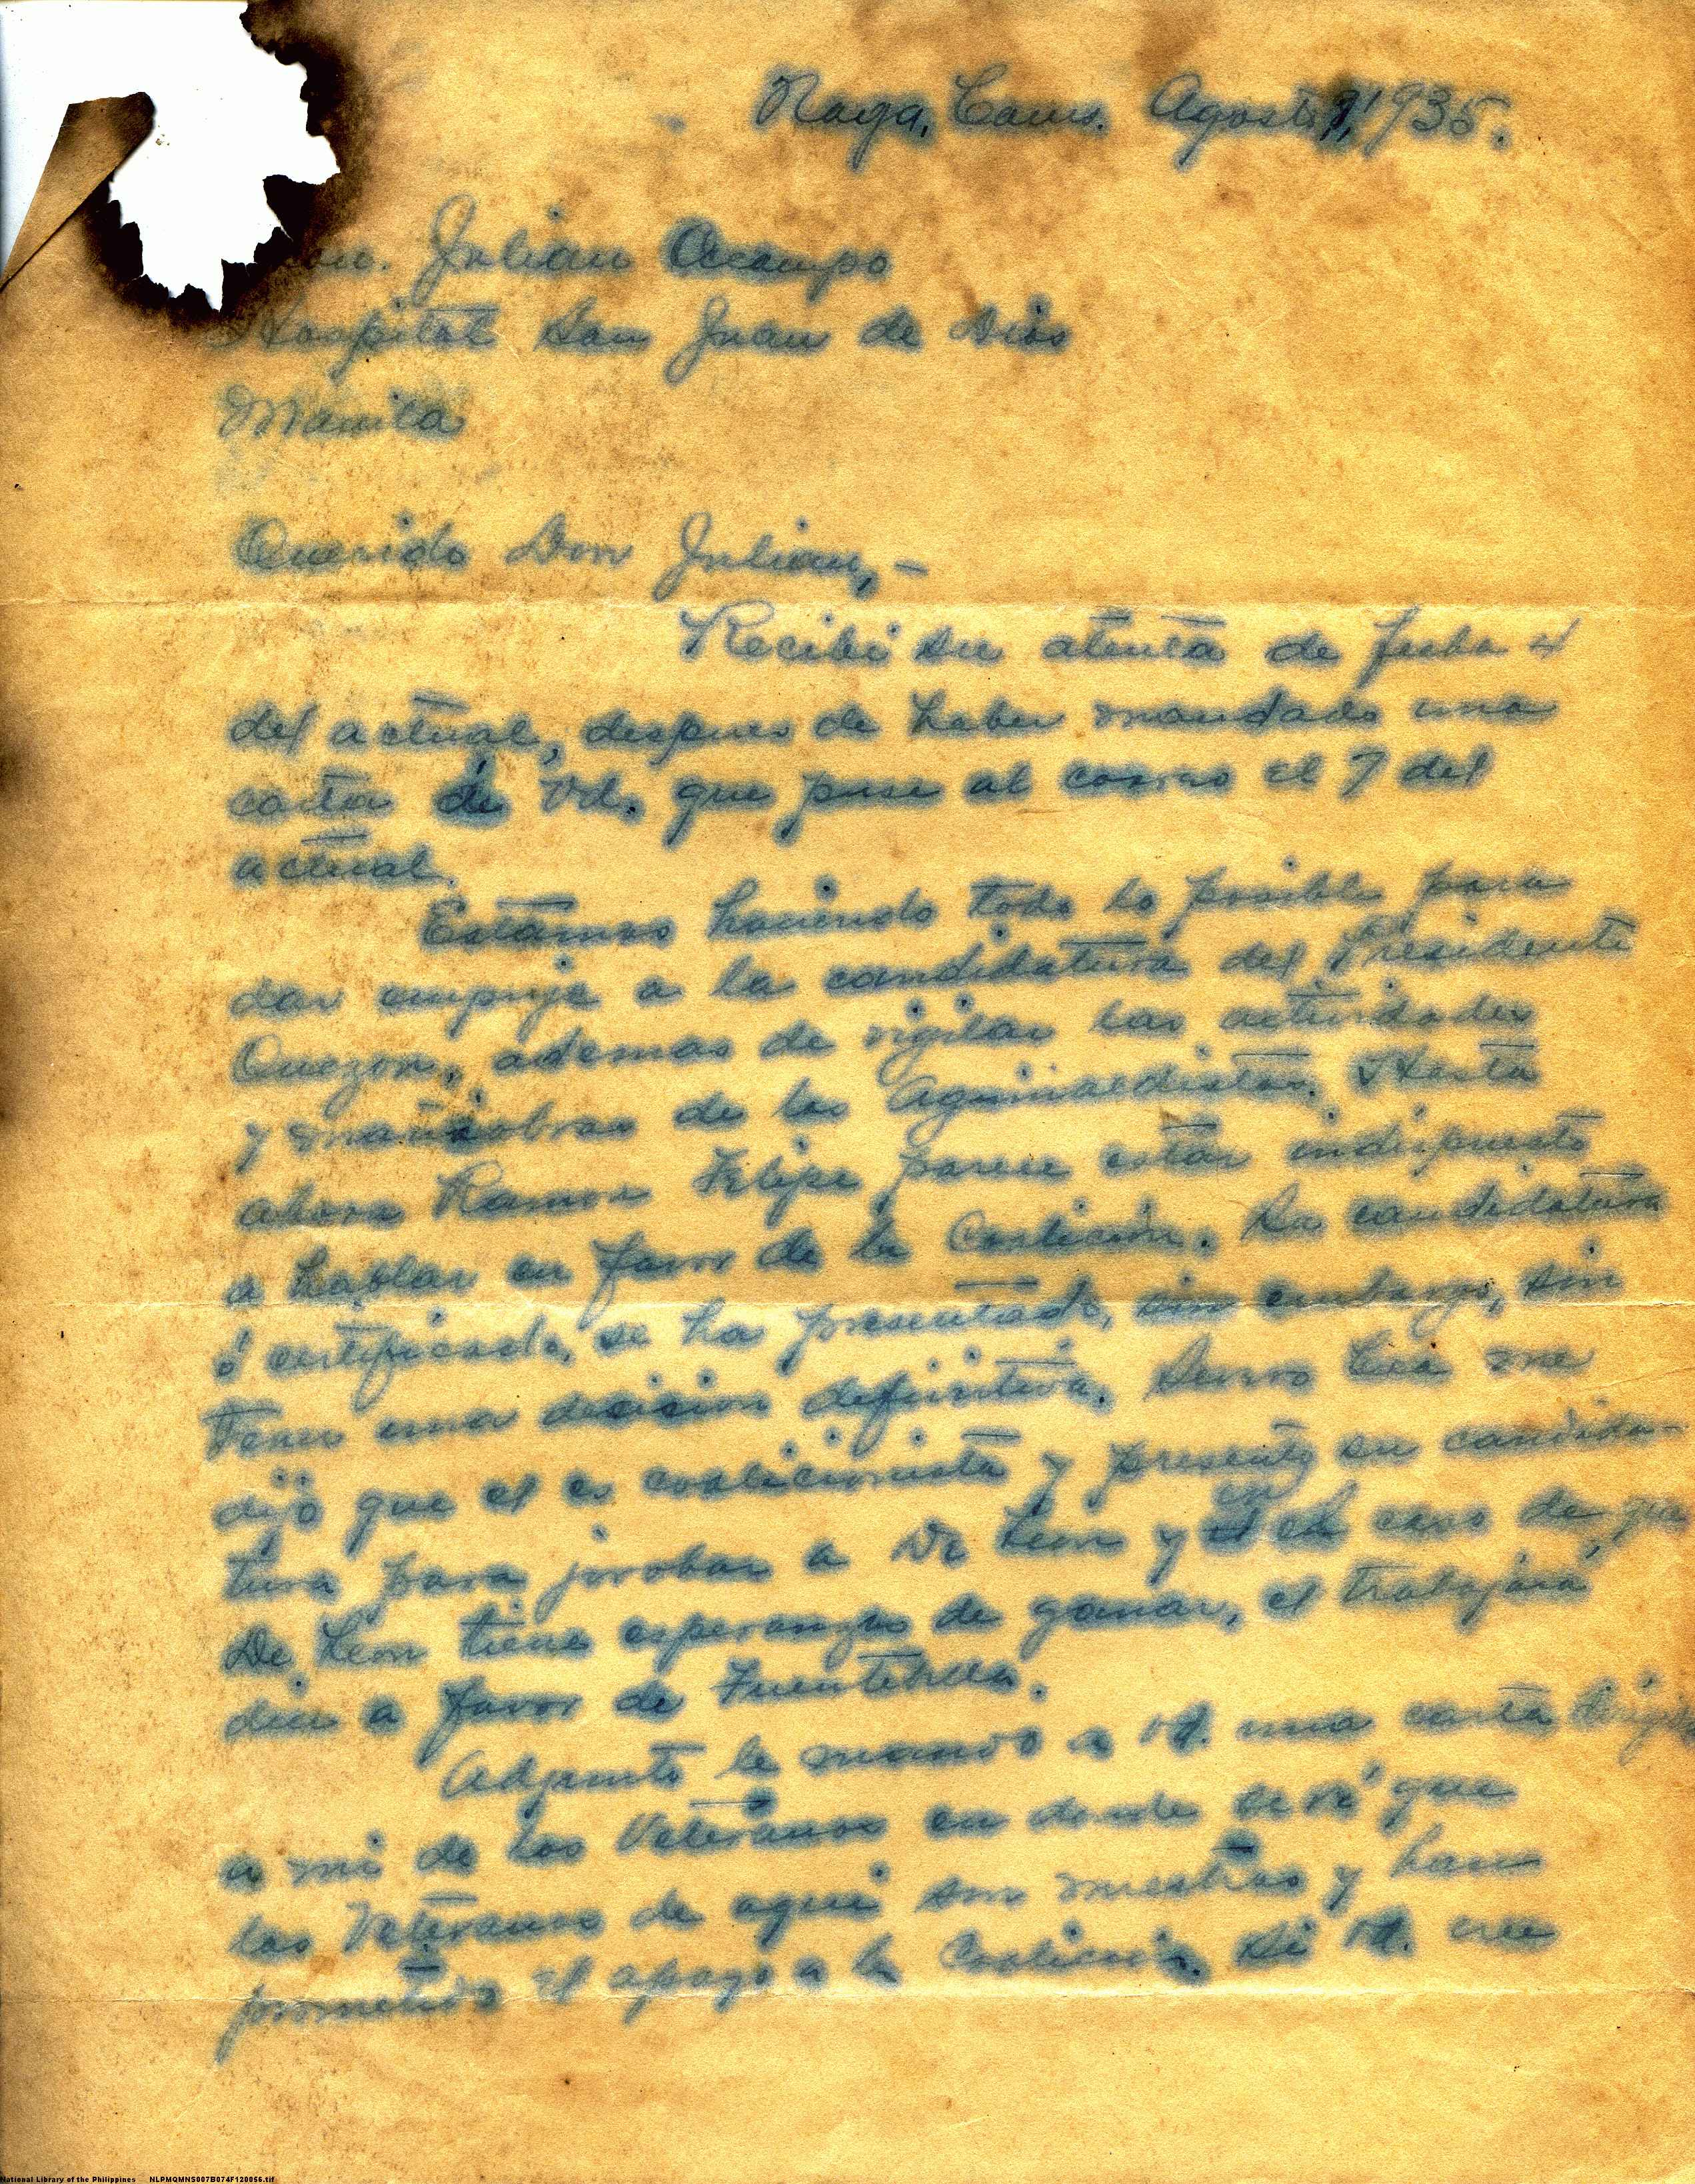 Naga, Cams. Agosto 9, 1935.
Hon. Julian Ocampo
Hospital San Juan de Dios
Manila
Querido Don Julian,-
Recibí su atenta de fecha 4
del actual, despues de haber mandado una
carta á Vd. que puse al correo el 7 del
actual.
Estamos haciendo todo lo posible para
dar empuje a la candidatura del Presidente
Quezon, ademas de vigilar las actividades
y maniobras de los Aguinaldistas. Hasta
ahora Ramon Felipe parece estar indispuesto
a hablar en favor de la Coalición. La candidatura
ó certificado, se ha presentado, sin embargo, sin
tener una decision definitiva. me
dijo que el es coalicionista y presentó su candida-
tura para jorobar a De Leon y en el caso de que
De Leon tiene esperanzas de ganar, el trabajará
a favor de Fuentebella.
Adjunto le mando a Vd. una carta
a mi de los Veteranos en donde se vé que
los Veteranos de aqui son nuestros y han
prometido el apoyo a la Coalición. Si Vd. cree
National Library of the Philippines NLPMQMNS007B074F120056.tif